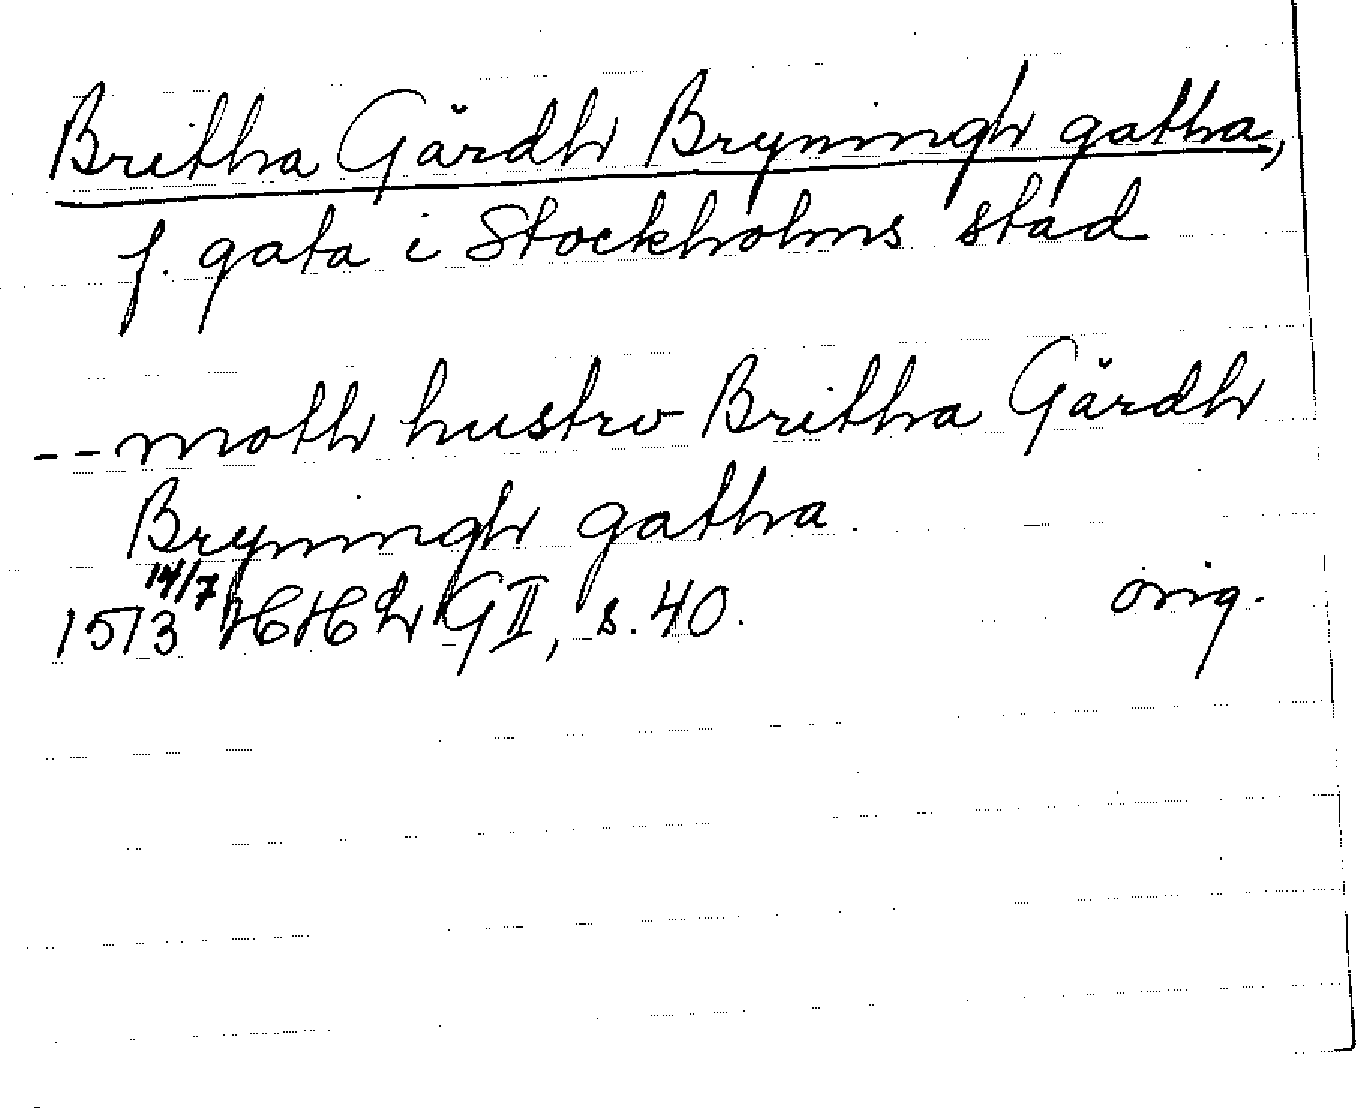 Britha Gärdh Bryningh gatha,
f. gata i Stockholms stad
-- moth hustro Britha Gärdh
Bryningh gatha.
1513 14/7 HHh GII, s. 40. orig.